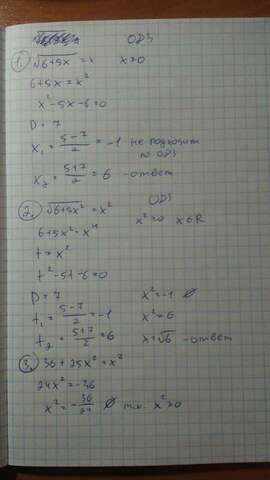 ОДЗ
1. √6+5x = x x≥0
6+5x=x²
x²-5x-6=0
D=7
x₁ = (5-7)/2 = -1 не подходит по ОДЗ
x₂ = (5+7)/2 = 6 -ответ
ОДЗ
2. √6+5x² = x² x²≥0 x∈R
6+5x²=x⁴
t=x²
t²-5t-6=0
D=7 x²=-1 ∅
t₁ = (5-7)/2 = -1 x²=6
t₂ = (5+7)/2 = 6 x=±√6 -ответ
3. 36+25x²=x²
24x²=-36
x² = -36/24 ∅ т.к. x²≥0